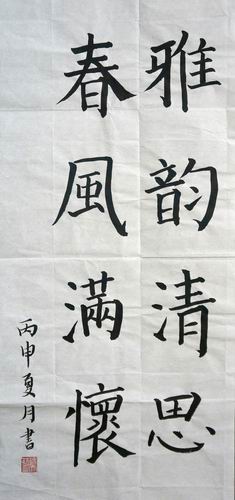 雅韵清思
春風滿懷
丙申夏月書